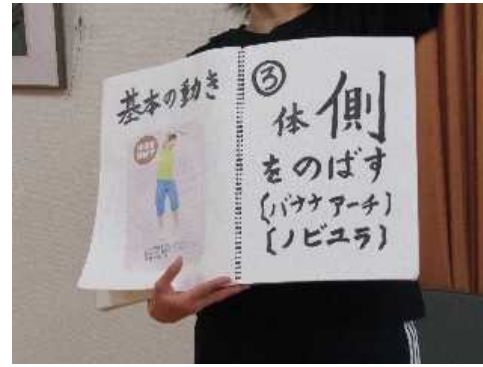 基本の動き
③
体側
をのばす
〔バナナアーチ〕
〔ノビユラ〕